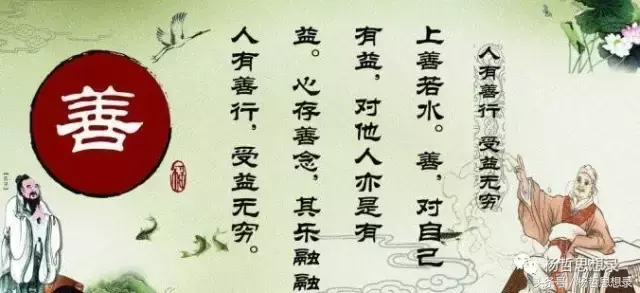 人有善行 受益无穷
上善若水。善，对自己
有益，对他人亦是有
益。心存善念，其乐融融
人有善行，受益无穷。
善
杨哲思想录
头条号／杨哲思想录